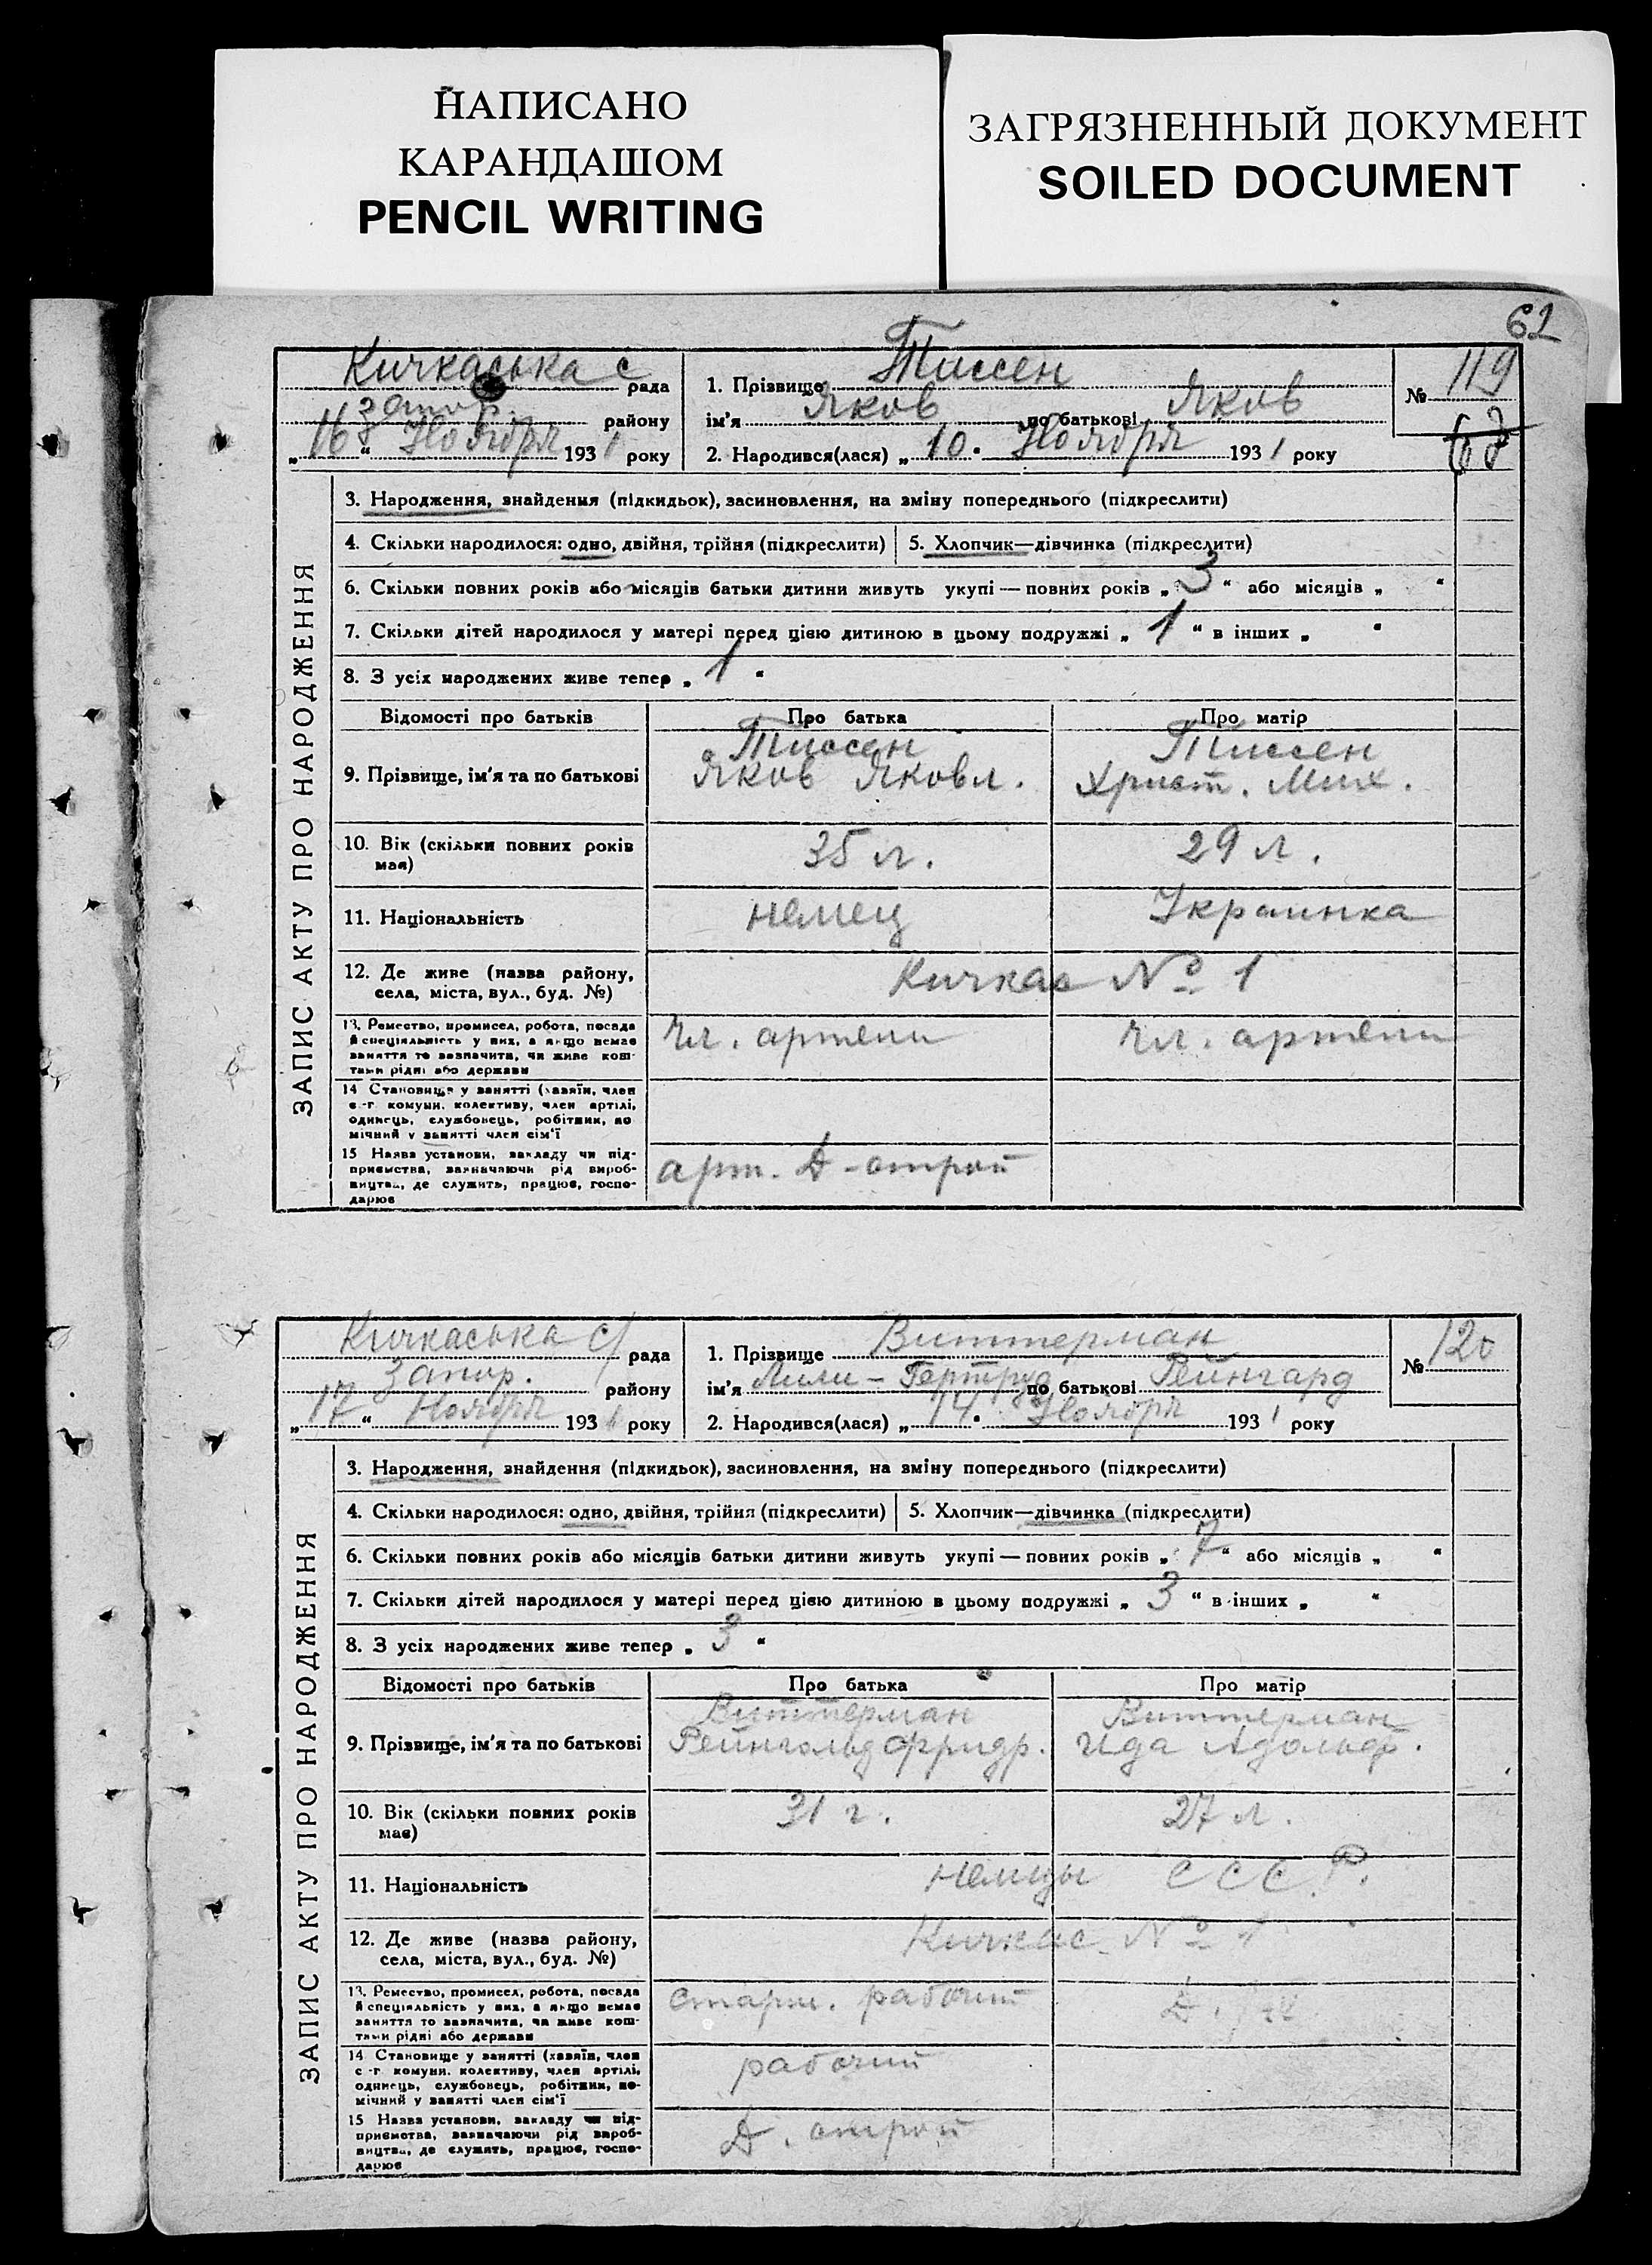 НАПИСАНО
КАРАНДАШОМ
PENCIL WRITING
ЗАГРЯЗНЕННЫЙ ДОКУМЕНТ
SOILED DOCUMENT
62
ЗАПИС АКТУ ПРО НАРОДЖЕННЯ
Кичкаська с рада
Запор. району
„16“ Ноября 1931 року
1. Прізвище Тиссен
ім'я Яков по батькові Яков
2. Народився(лася) „10. Ноября 1931 року
№ 119
3. Народження, знайдення (підкидьок), засиновлення, на зміну попереднього (підкреслити)
4. Скільки народилося: одно, двійня, трійня (підкреслити)
5. Хлопчик—дівчинка (підкреслити)
6. Скільки повних років або місяців батьки дитини живуть укупі — повних років „3“ або місяців „ “
7. Скільки дітей народилося у матері перед цією дитиною в цьому подружжі „1“ в інших „ “
8. З усіх народжених живе тепер „1“
Відомості про батьків Про батька Про матір
9. Прізвище, ім'я та по батькові
Тиссен
Яков Яковл.
Тиссен
Христ. Мих.
10. Вік (скільки повних років має)
35 л. 29 л.
11. Національність немец Украинка
12. Де живе (назва району,
села, міста, вул., буд. №)
Кичкас № 1
13. Ремество, промисел, робота, посада
й спеціяльність у них, а якщо немає
заняття то зазначити, чи живе кош-
тами рідні або держави
Чл. артели чл. артели
14 Становище у занятті (хазяїн, член
с.-г комуни, колективу, член артілі,
одинець, службовець, робітник, по
мічний у занятті член сім'ї
15 Назва установи, закладу чи під-
приємства, зазначаючи рід вироб-
ництва, де служить, працює, госпо-
дарює
арт. Д-строй
ЗАПИС АКТУ ПРО НАРОДЖЕННЯ
Кичкаська с/ рада
Запор. району
„17“ Ноября 1931 року
1. Прізвище Виттерман
ім'я Лили-Гертруд по батькові Рейнгард
2. Народився(лася) „14. Ноября 1931 року
№ 120
3. Народження, знайдення (підкидьок), засиновлення, на зміну попереднього (підкреслити)
4. Скільки народилося: одно, двійня, трійня (підкреслити)
5. Хлопчик—дівчинка (підкреслити)
6. Скільки повних років або місяців батьки дитини живуть укупі — повних років „7“ або місяців „ “
7. Скільки дітей народилося у матері перед цією дитиною в цьому подружжі „3“ в інших „ “
8. З усіх народжених живе тепер „3“
Відомості про батьків Про батька Про матір
9. Прізвище, ім'я та по батькові
Виттерман
Рейнгольд Фридр.
Виттерман
Ида Адольф.
10. Вік (скільки повних років
має)
31 г. 27 л.
11. Національність немцы СССР.
12. Де живе (назва району,
села, міста, вул., буд. №)
Кичкас № 1
13. Ремество, промисел, робота, посада
й спеціяльність у них, а якщо немає
заняття то зазначити, чи живе кош-
тами рідні або держави
старш. рабочий
14 Становище у занятті (хазяїн, член
с.-г комуни, колективу, член артілі,
одинець, службовець, робітник, по-
мічний у занятті член сім'ї
рабочий
15 Назва установи, закладу чи під-
приємства, зазначаючи рід вироб-
ництва, де служить, працює, госпо-
дарює
Д. строй